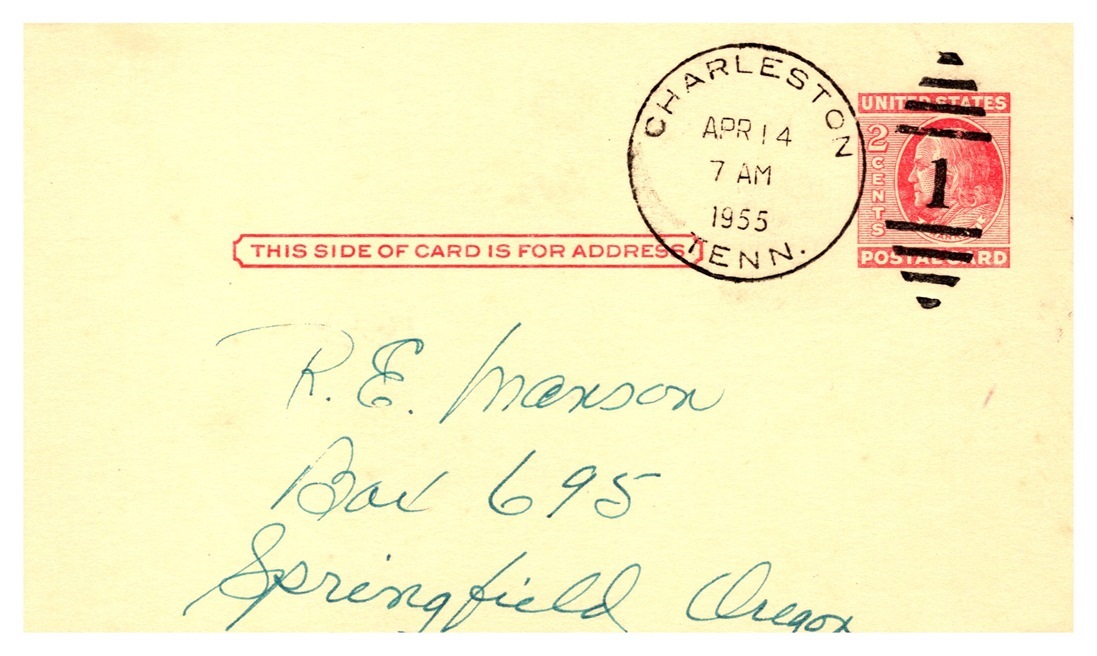 CHARLESTON
APR 14
7 AM
1955
TENN.
UNITED STATES
2 CENTS
1
POSTAL CARD
THIS SIDE OF CARD IS FOR ADDRESS
R. E. Manson
Box 695
Springfield Oregon